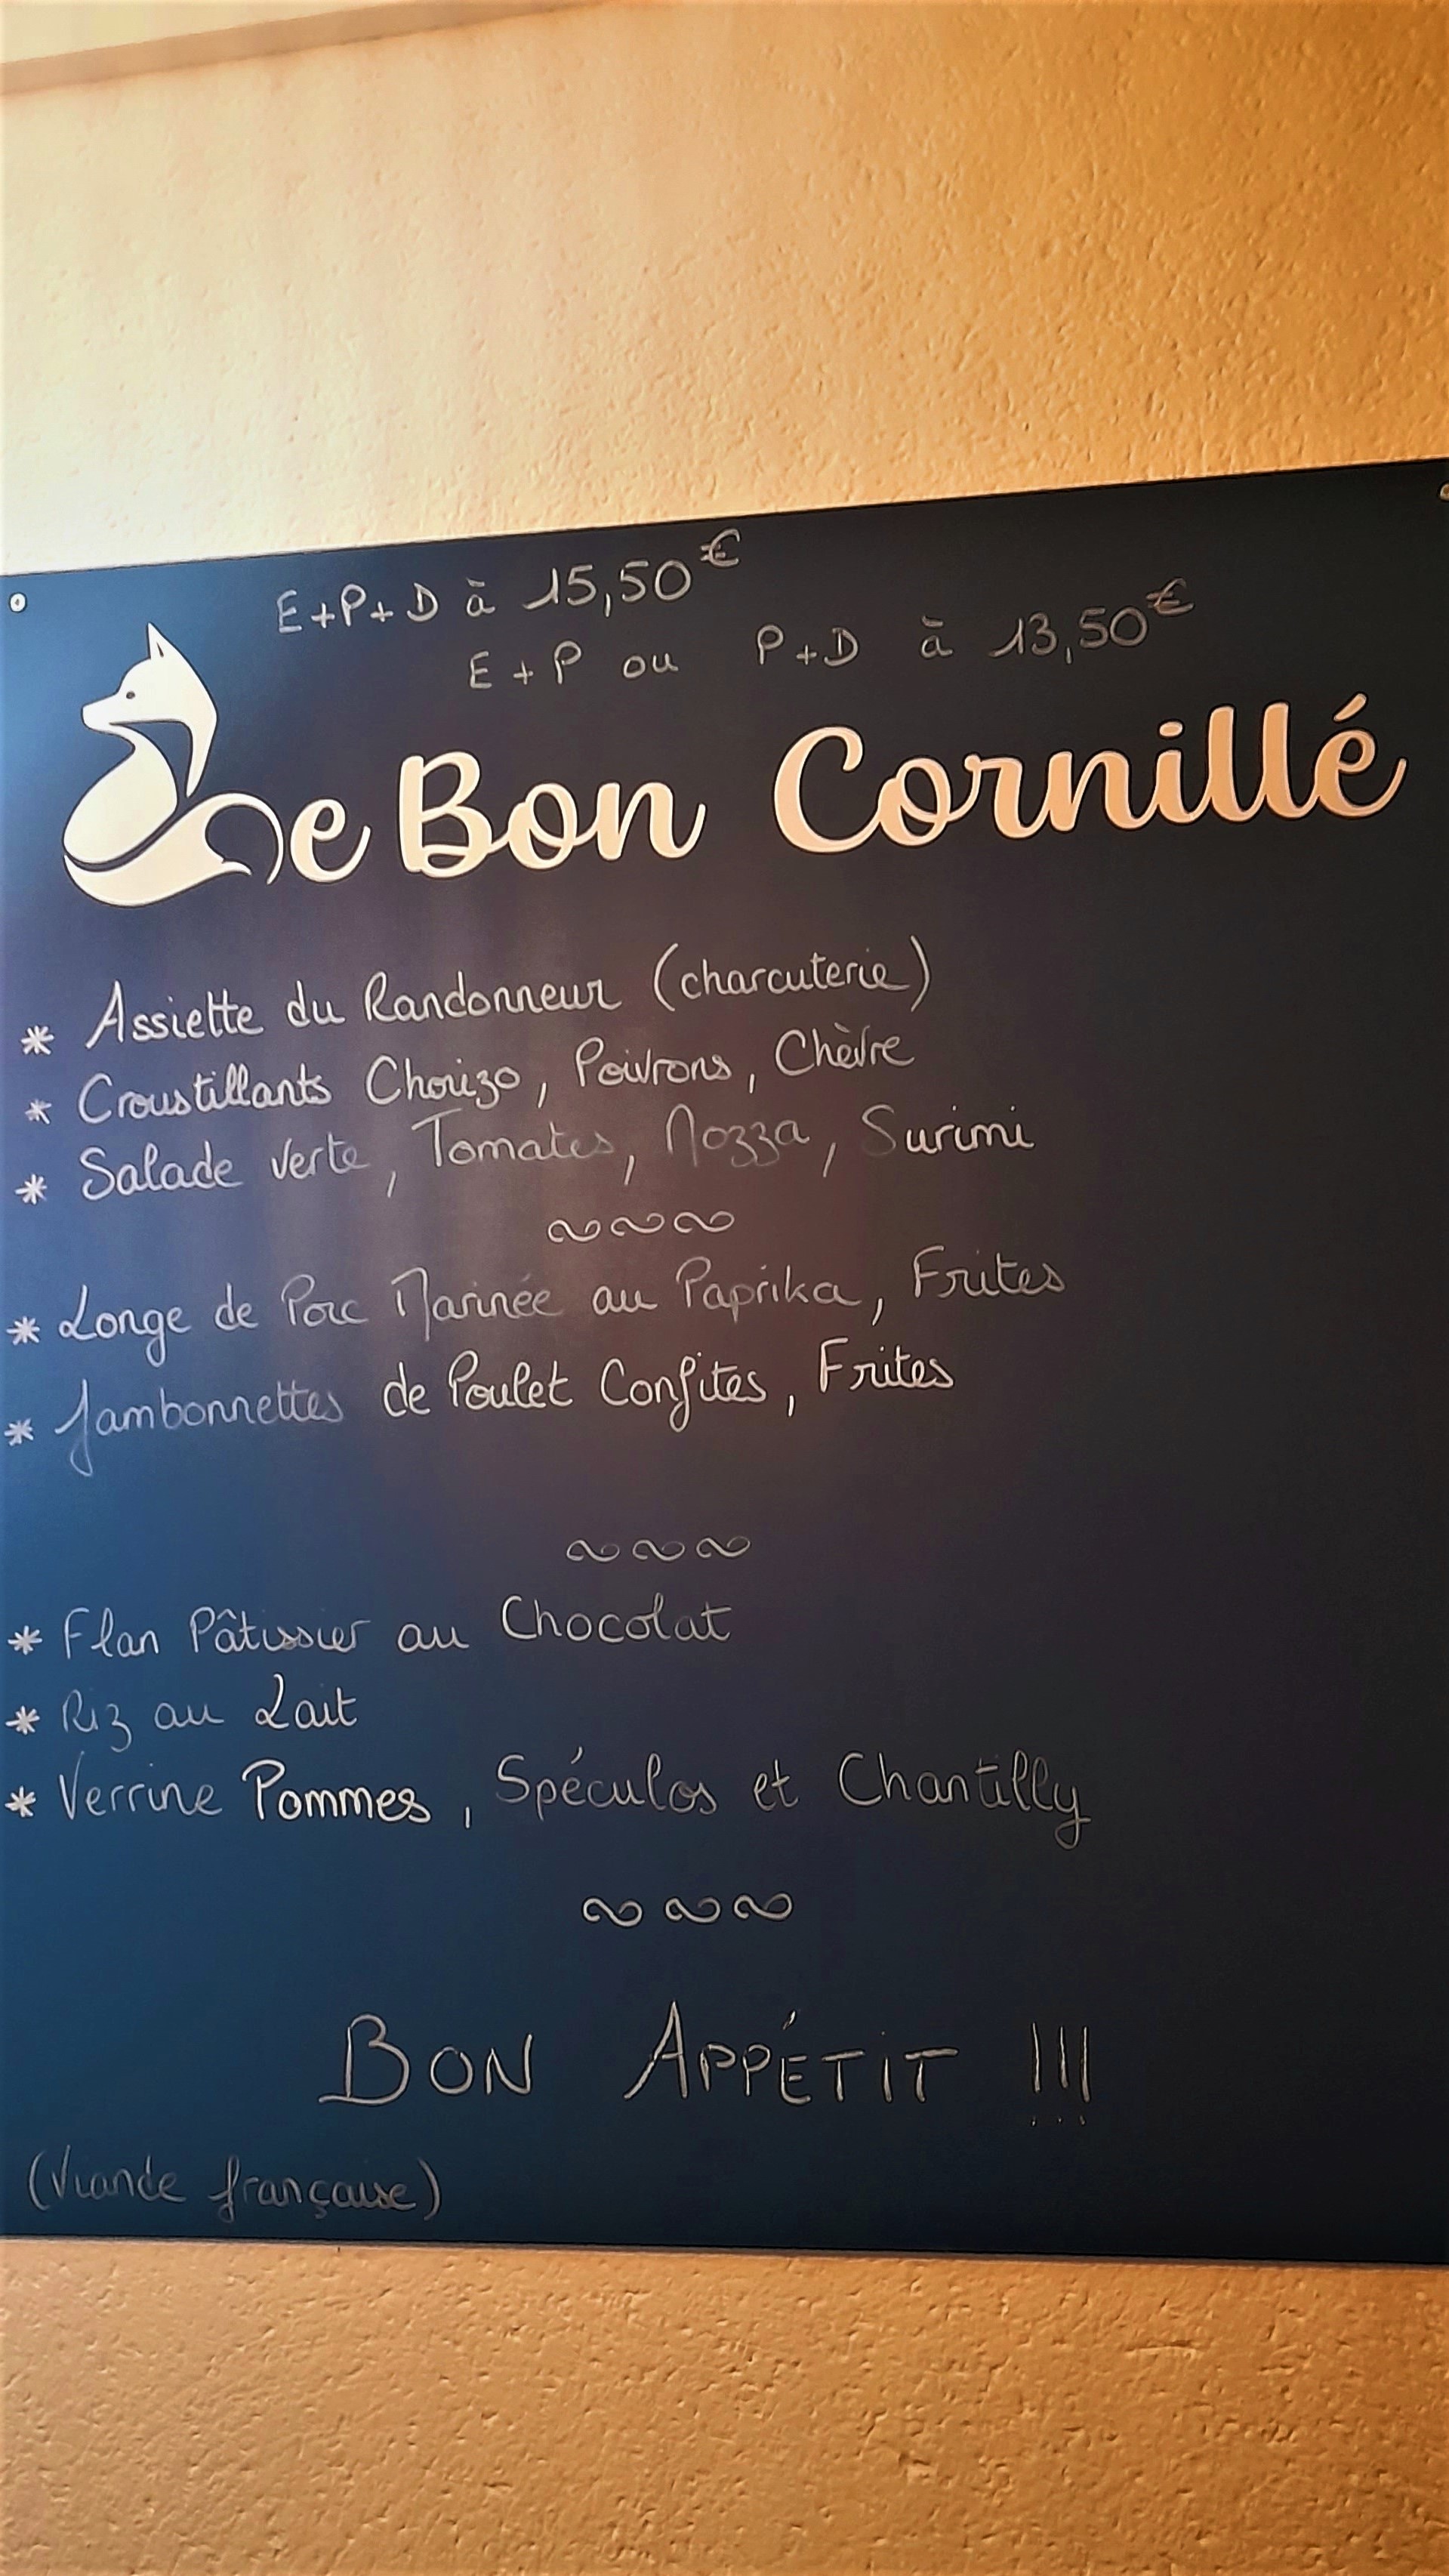 E+P+D à 15,50€
E+P ou P+D à 13,50€
Le Bon Cornillé
* Assiette du Randonneur (charcuterie)
* Croustillants Chorizo, Poivrons, Chèvre
* Salade verte, Tomates, Mozza, Surimi
~~~
* Longe de Porc Marinée au Paprika, Frites
* Jambonnettes de Poulet Confites, Frites
~~~
* Flan Pâtissier au Chocolat
* Riz au Lait
* Verrine Pommes, Spéculos et Chantilly
~~~
BON APPÉTIT !!!
(Viande française)